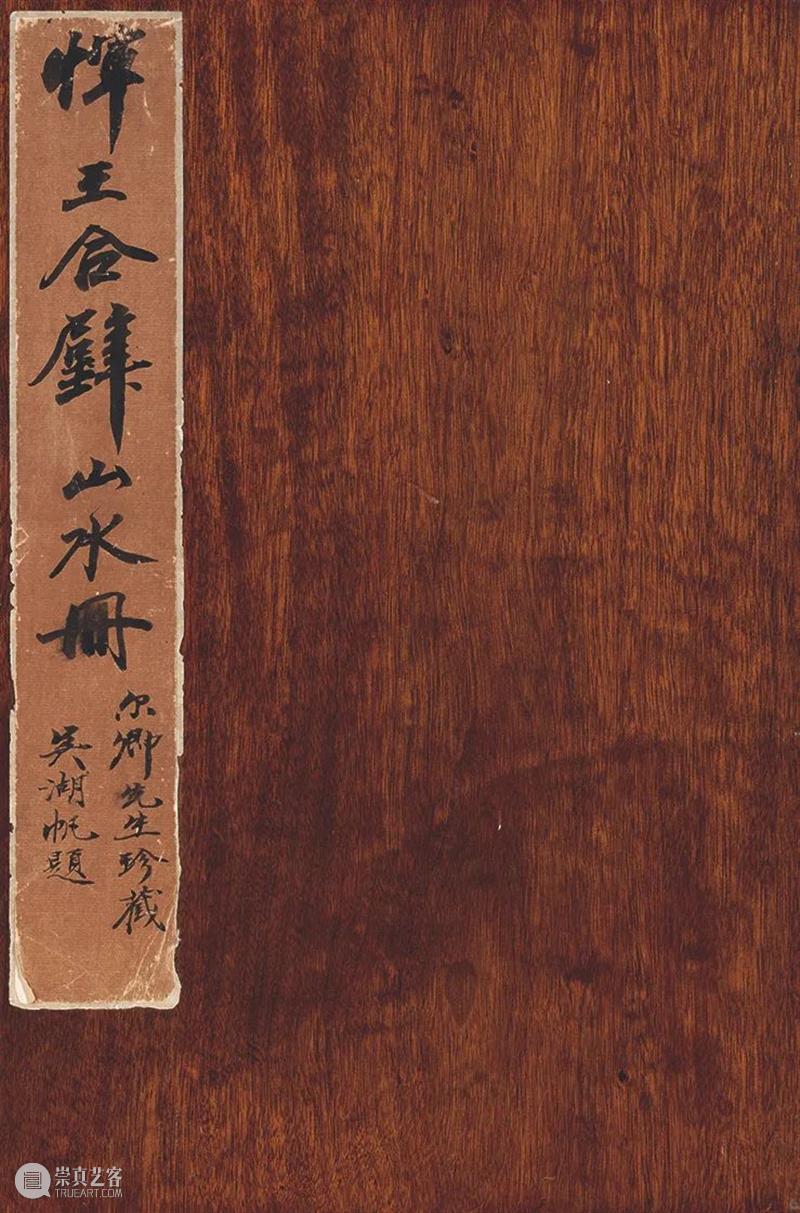 惲王合璧山水冊
尔卿先生珍藏
吴湖帆題
崇真艺客
TRUEART.COM